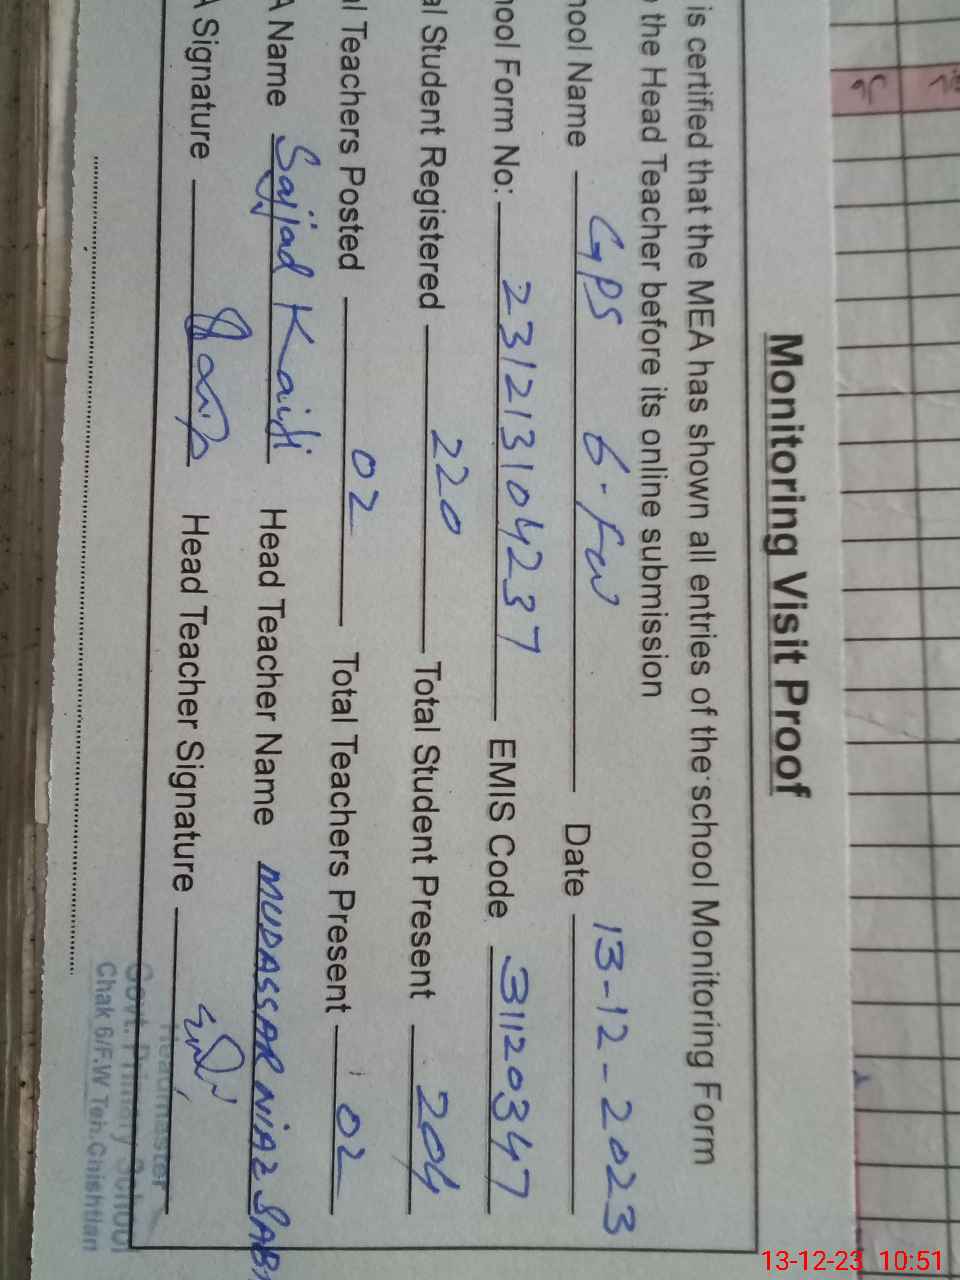 Monitoring Visit Proof
is certified that the MEA has shown all entries of the school Monitoring Form
the Head Teacher before its online submission
hool Name GPS 6-FW Date 13-12-2023
hool Form No: 231213104237 EMIS Code 31120347
al Student Registered 220 Total Student Present 204
al Teachers Posted 02 Total Teachers Present 02
A Name Sajjad Kaidi Head Teacher Name MUDASSAR NIAZ SAB
A Signature Head Teacher Signature
Headmaster
Govt. Primary School
Chak 6/F.W Teh.Chishtian
13-12-23 10:51